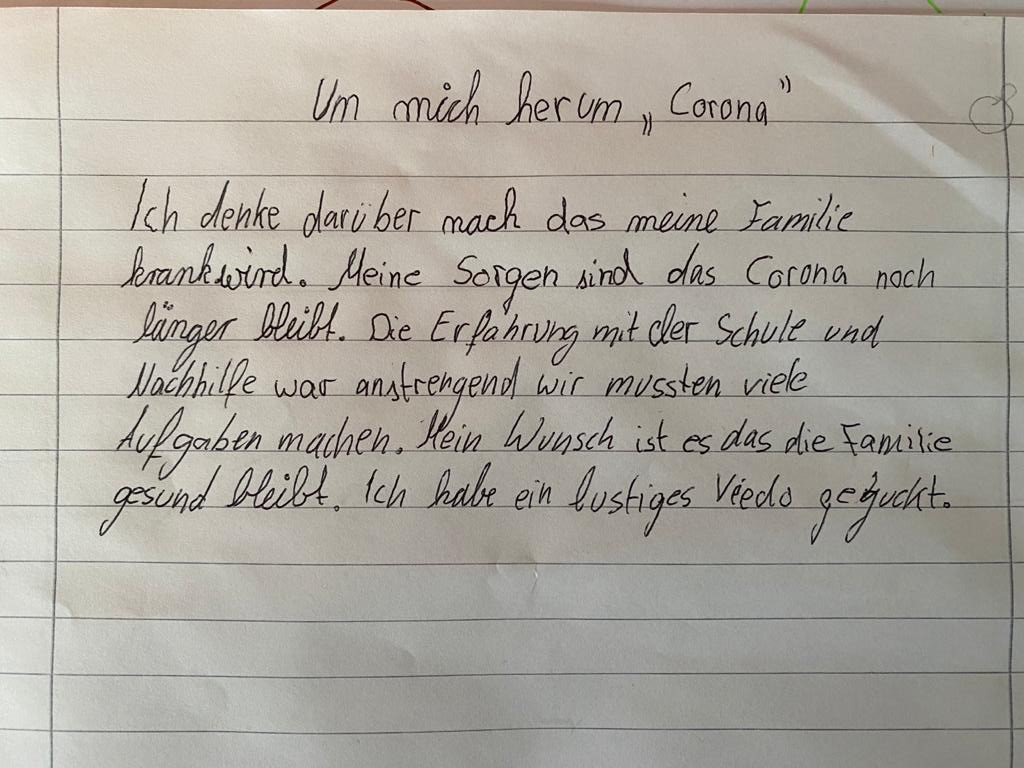 Um mich herum „Corona"
Ich denke darüber nach das meine Familie
krank wird. Meine Sorgen sind das Corona noch
länger bleibt. Die Erfahrung mit der Schule und
Nachhilfe war anstrengend wir mussten viele
Aufgaben machen. Mein Wunsch ist es das die Familie
gesund bleibt. Ich habe ein lustiges Viedo geguckt.